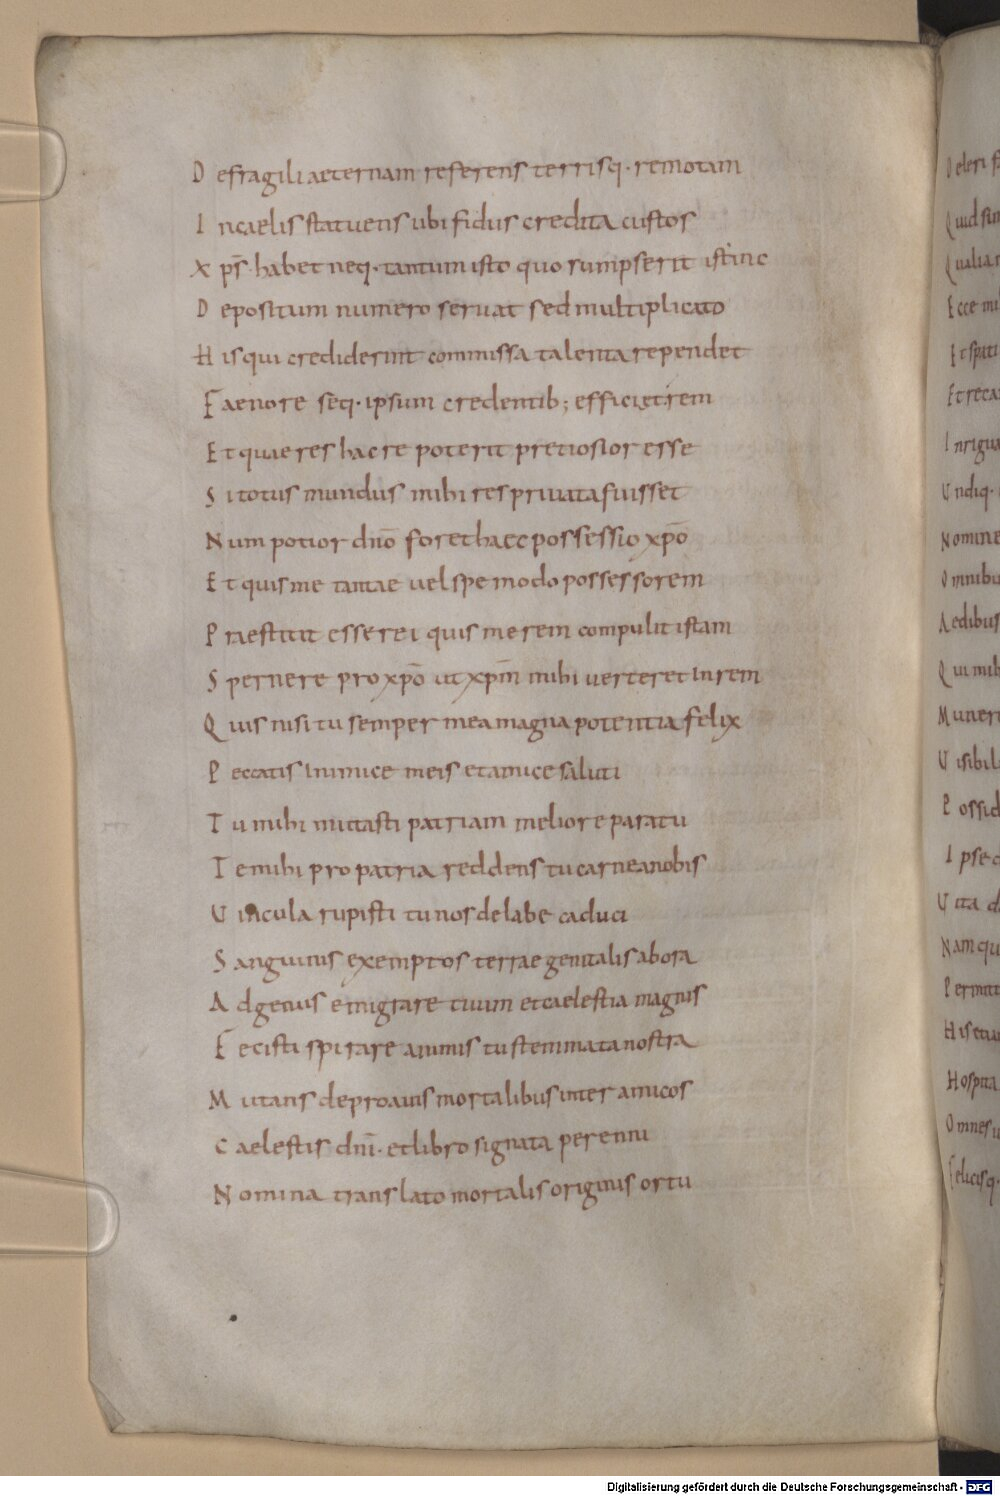 D efragili aeternam referens terrisq· remotam
I ncaelis statuens ubi fidus credita custos
X ps̄· habet neq· tantum isto quo sumpserit istinc
D epositum numero seruat sed multiplicato
H is qui crediderint commissa talenta rependet
F aenore seq· ipsum credentib; efficiet rem
E t quae res hac re poterit pretiosior esse
S i totus mundus mihi res priuata fuisset
N um potior dn̄o foret haec possessio xp̄o
E t quis me tantae uel spe modo possessorem
P raestitit esse rei quis me rem compulit istam
S pernere pro xp̄o ut xp̄m mihi uerteret in rem
Q uis nisi tu semper mea magna potentia felix
P eccatis inimice meis et amice saluti
T u mihi mutasti patriam meliore paratu
T e mihi pro patria reddens tu carnea nobis
U incula rupisti tu nos de labe caduci
S anguinis exemptos terrae genitalis abora
A d genus emigrare tuum et caelestia magnis
F ecisti spirare animis tu stemmata nostra
M utans de proauis mortalibus inter amicos
C aelestis dn̄i· et libro signata perenni
N omina translato mortalis originis ortu
D eleri
Q uid
Q ualia
E cce
E t
E t
I nrigua
U ndiq·
N omine
O mnibus
A edibus
Q ui mihi
M unera
U isibil
P ossid
I pse
U ita
N amqu
P ermitt
H is etia
H ospita
O mnes
F elicisq·
Digitalisierung gefördert durch die Deutsche Forschungsgemeinschaft - DFG